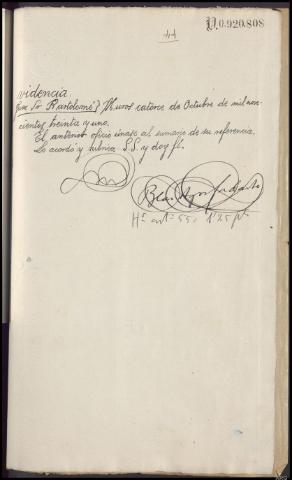 44
P.0.920.808
videncia.
Juez Sr Bartolomé
catorce de Octubre de mil nove
cientos treinta y uno.
El anterior oficio únase al sumario de su referencia.
Lo acordó y rubrica S.S. y doy fé.